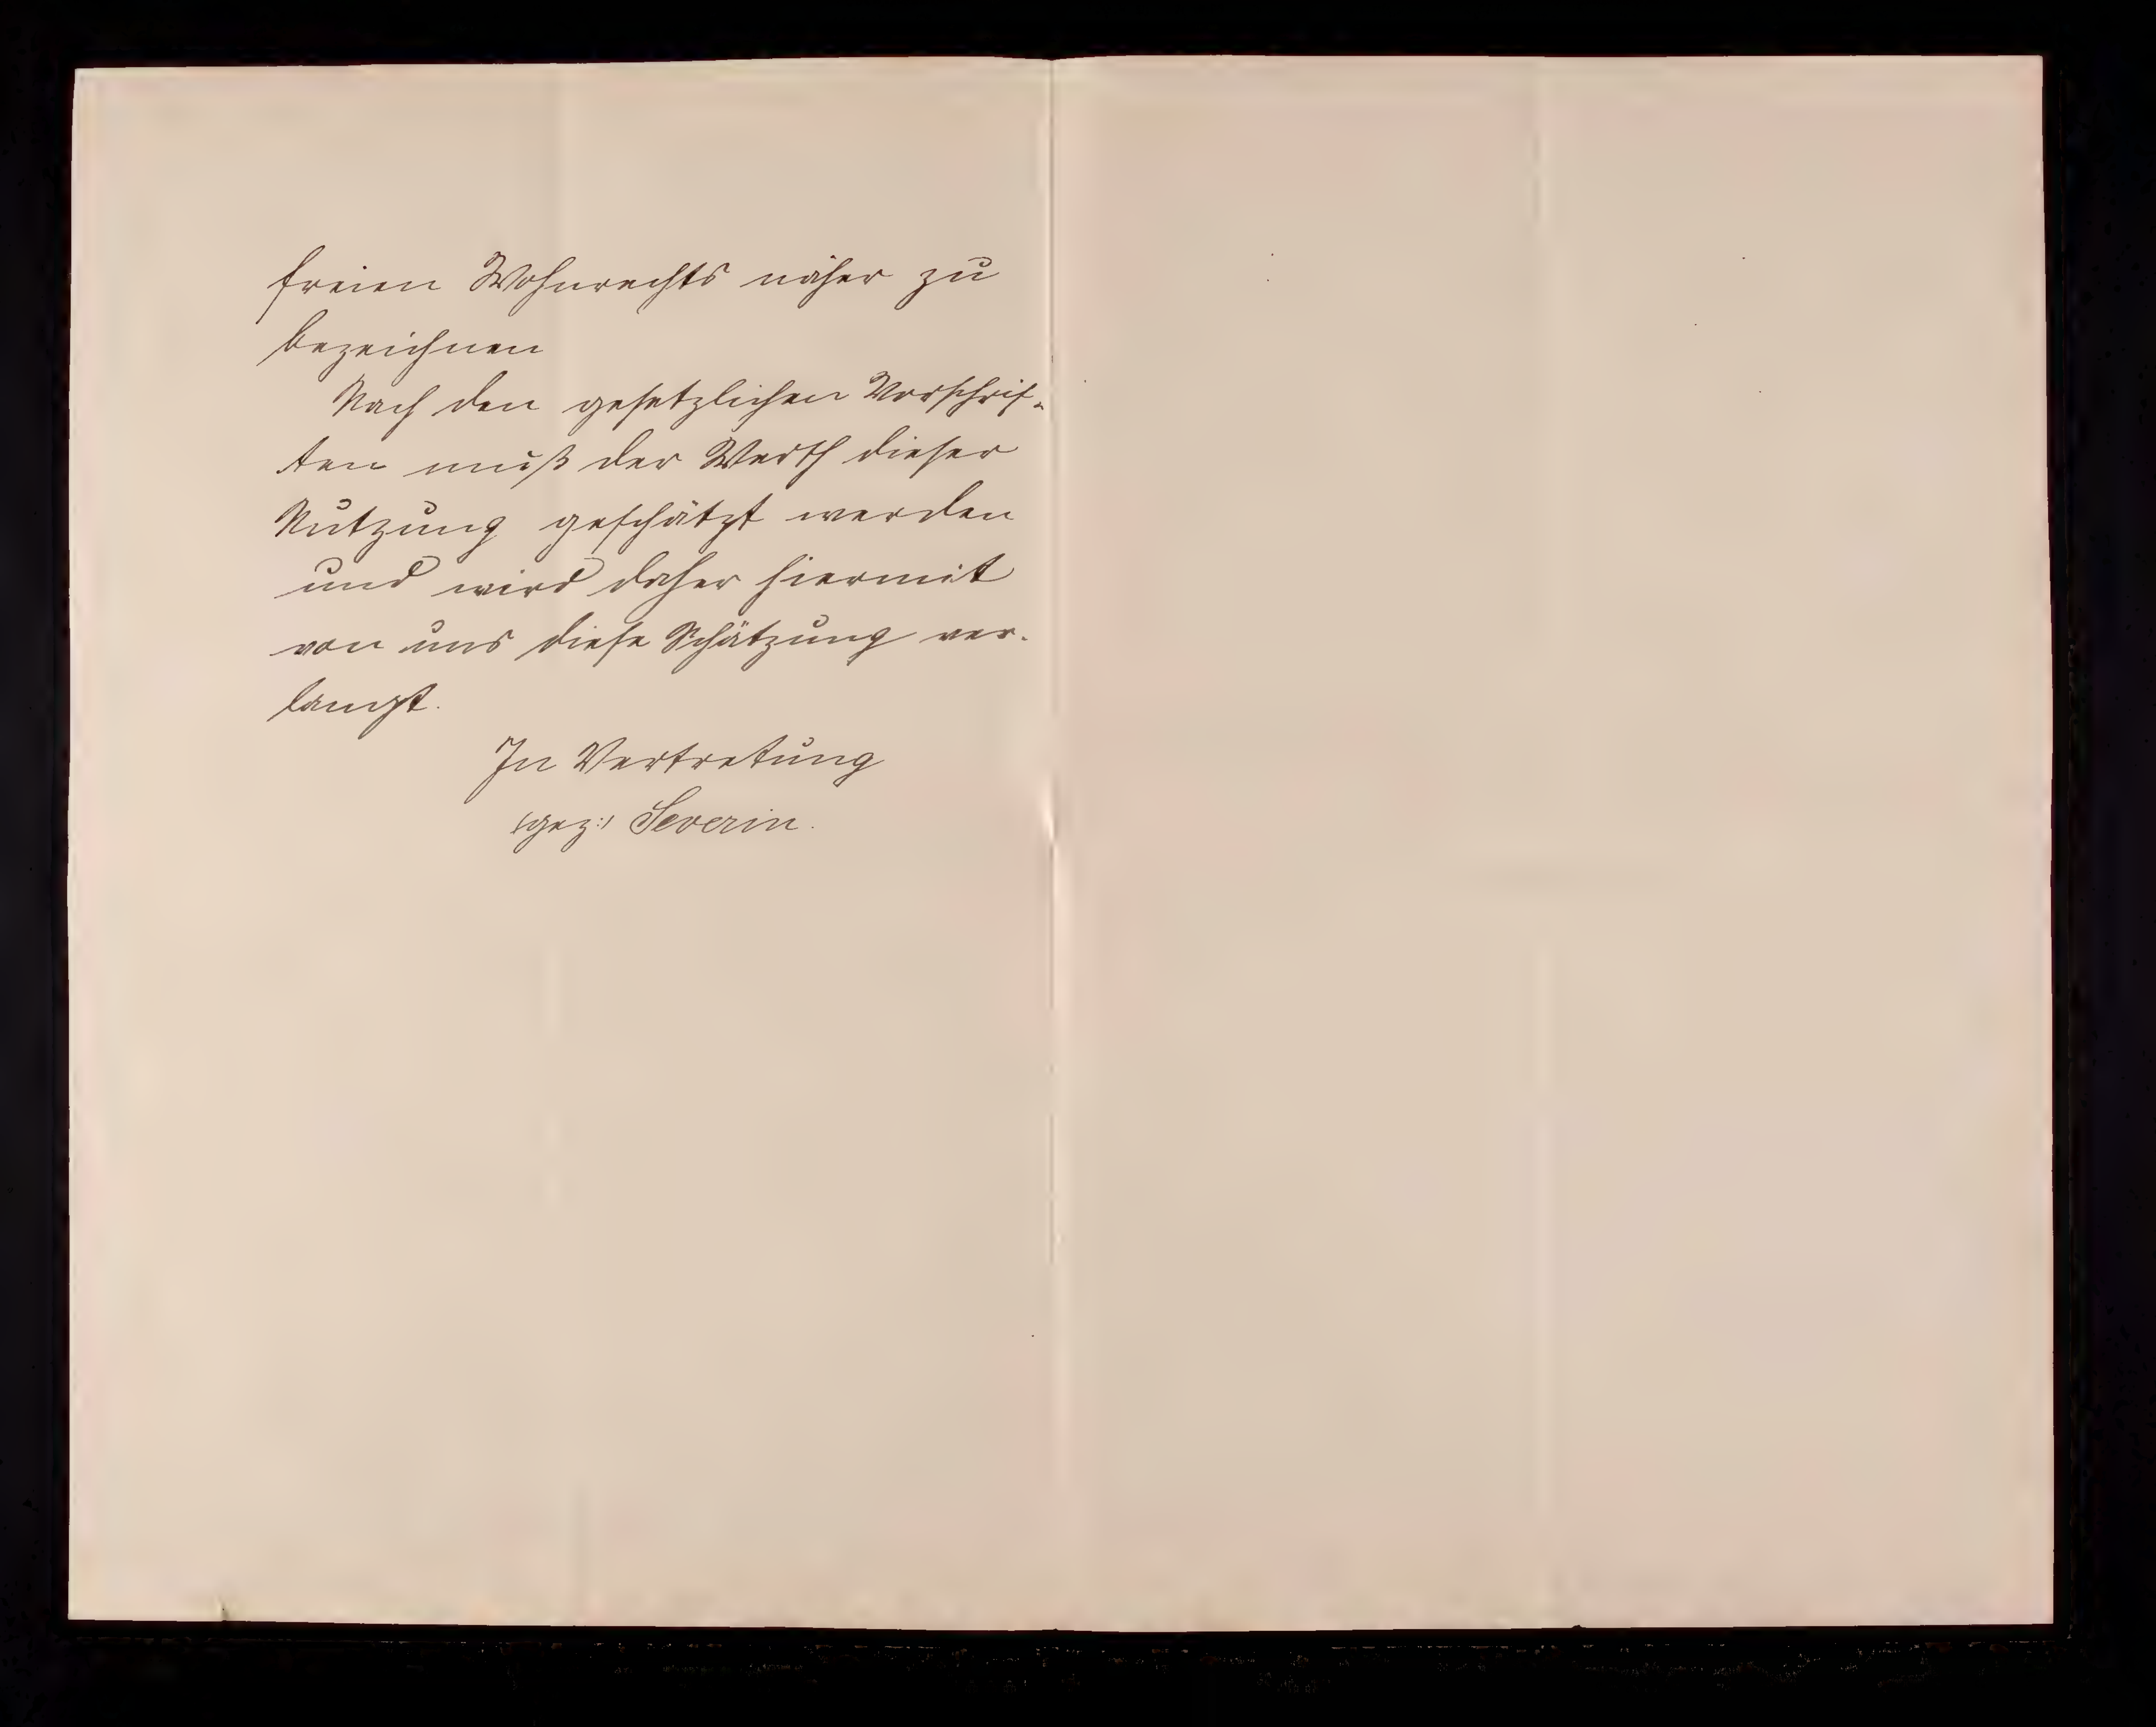 freien Wohnrechts näher zu
bezeichnen
Nach den gesetzlichen Vorschrif-
ten muß der Werth dieser
Nutzung geschätzt werden
und wird daher hiermit
von uns diese Schätzung ver-
langt.
In Vertretung
(gez:) Severin.